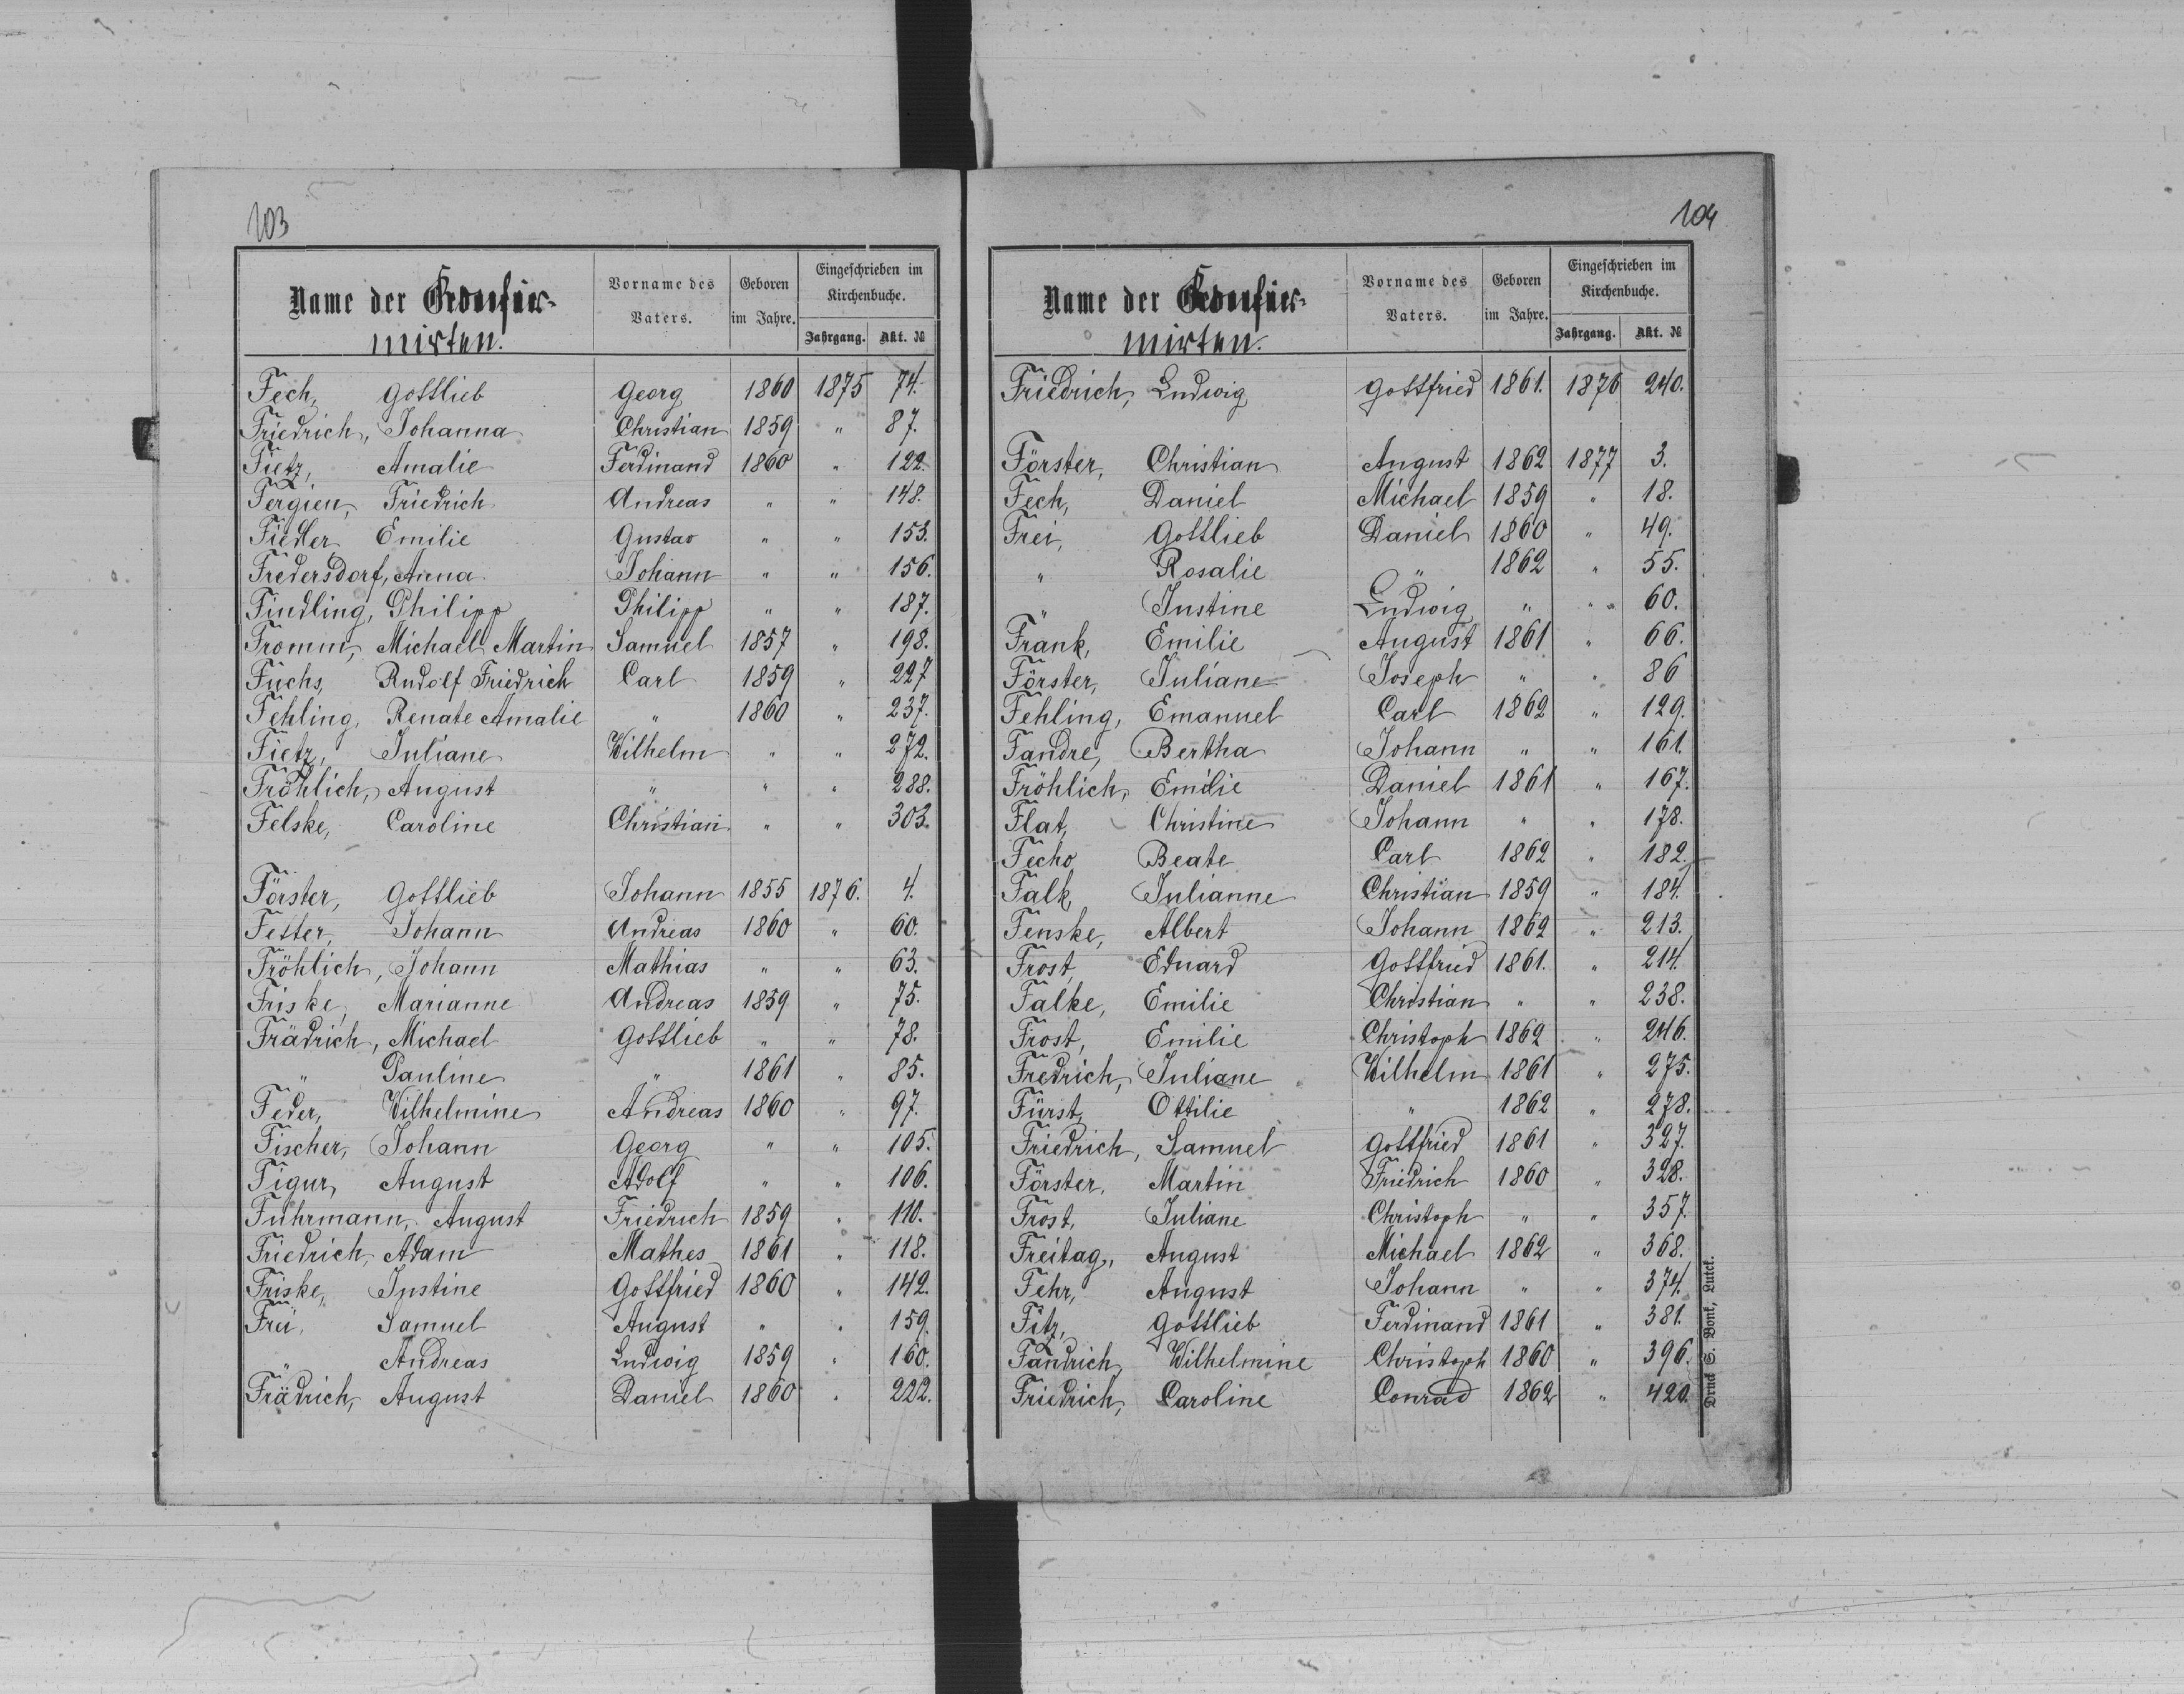 103
Name der Konfir-
mirten.
Vorname des
Vaters.
Geboren
im Jahre.
Eingeschrieben im
Kirchenbuche.
Jahrgang. Akt. №
Fech, Gottlieb Georg 1860 1875 74.
Friedrich, Johanna Christian 1859 " 87.
Fietz, Amalie Ferdinand 1860 " 122.
Fergien, Friedrich Andreas " " 148.
Fiedler, Emilie Gustav " " 153.
Fredersdorf, Anna Johann " " 156.
Findling, Philipp Philipp " " 187.
Fromm, Michael Martin Samuel 1857 " 198.
Fuchs, Rudolf Friedrich Carl 1859 " 227
Fehling, Renate Amalie " 1860 " 237.
Fietz, Juliane Wilhelm " " 272.
Fröhlich, August " " " 288.
Felske, Caroline Christian " " 303.
Förster, Gottlieb Johann 1855 1876. 4.
Fetter, Johann Andreas 1860 " 60.
Fröhlich, Johann Mathias " " 63.
Friske, Marianne Andreas 1859 " 75.
Frädrich, Michael Gottlieb " " 78.
" Pauline " 1861 " 85.
Feder, Wilhelmine Andreas 1860 " 97.
Fischer, Johann Georg " " 105.
Figur, August Adolf " " 106.
Fuhrmann, August Friedrich 1859 " 110.
Friedrich, Adam Mathes 1861 " 118.
Friske, Justine Gottfried 1860 " 142.
Frei, Samuel August " " 159.
" Andreas Ludwig 1859 " 160.
Frädrich, August Daniel 1860 " 222.
104
Name der Konfir-
mirten.
Vorname des
Vaters.
Geboren
im Jahre.
Eingeschrieben im
Kirchenbuche.
Jahrgang. Akt. №
Friedrich, Ludwig Gottfried 1861. 1876 240.
Förster, Christian August 1862 1877 3.
Fech, Daniel Michael 1859 " 18.
Frei, Gottlieb Daniel 1860 " 49.
" Rosalie " 1862 " 55.
" Justine Ludwig " " 60.
Frank, Emilie August 1861 " 66.
Förster, Juliane Joseph " " 86
Fehling, Emanuel Carl 1862 " 129.
Fandre, Bertha Johann " " 161.
Fröhlich, Emilie Daniel 1861 " 167.
Flat, Christine Johann " " 178.
Fecho Beate Carl 1862 " 182.
Falk, Julianne Christian 1859 " 184.
Fenske, Albert Johann 1862 " 213.
Frost, Eduard Gottfried 1861. " 214.
Falke, Emilie Christian " " 238.
Frost, Emilie Christoph 1862 " 246.
Fredrich, Juliane Wilhelm 1861 " 275.
Fürst, Ottilie " 1862 " 278.
Friedrich, Samuel Gottfried 1861 " 327.
Förster, Martin Friedrich 1860 " 328.
Frost, Juliane Christoph " " 357.
Freitag, August Michael 1862 " 368.
Fehr, August Johann " " 374.
Fitz, Gottlieb Ferdinand 1861 " 381.
Fandrich, Wilhelmine Christoph 1860 " 396.
Friedrich, Caroline Conrad 1862 " 420.